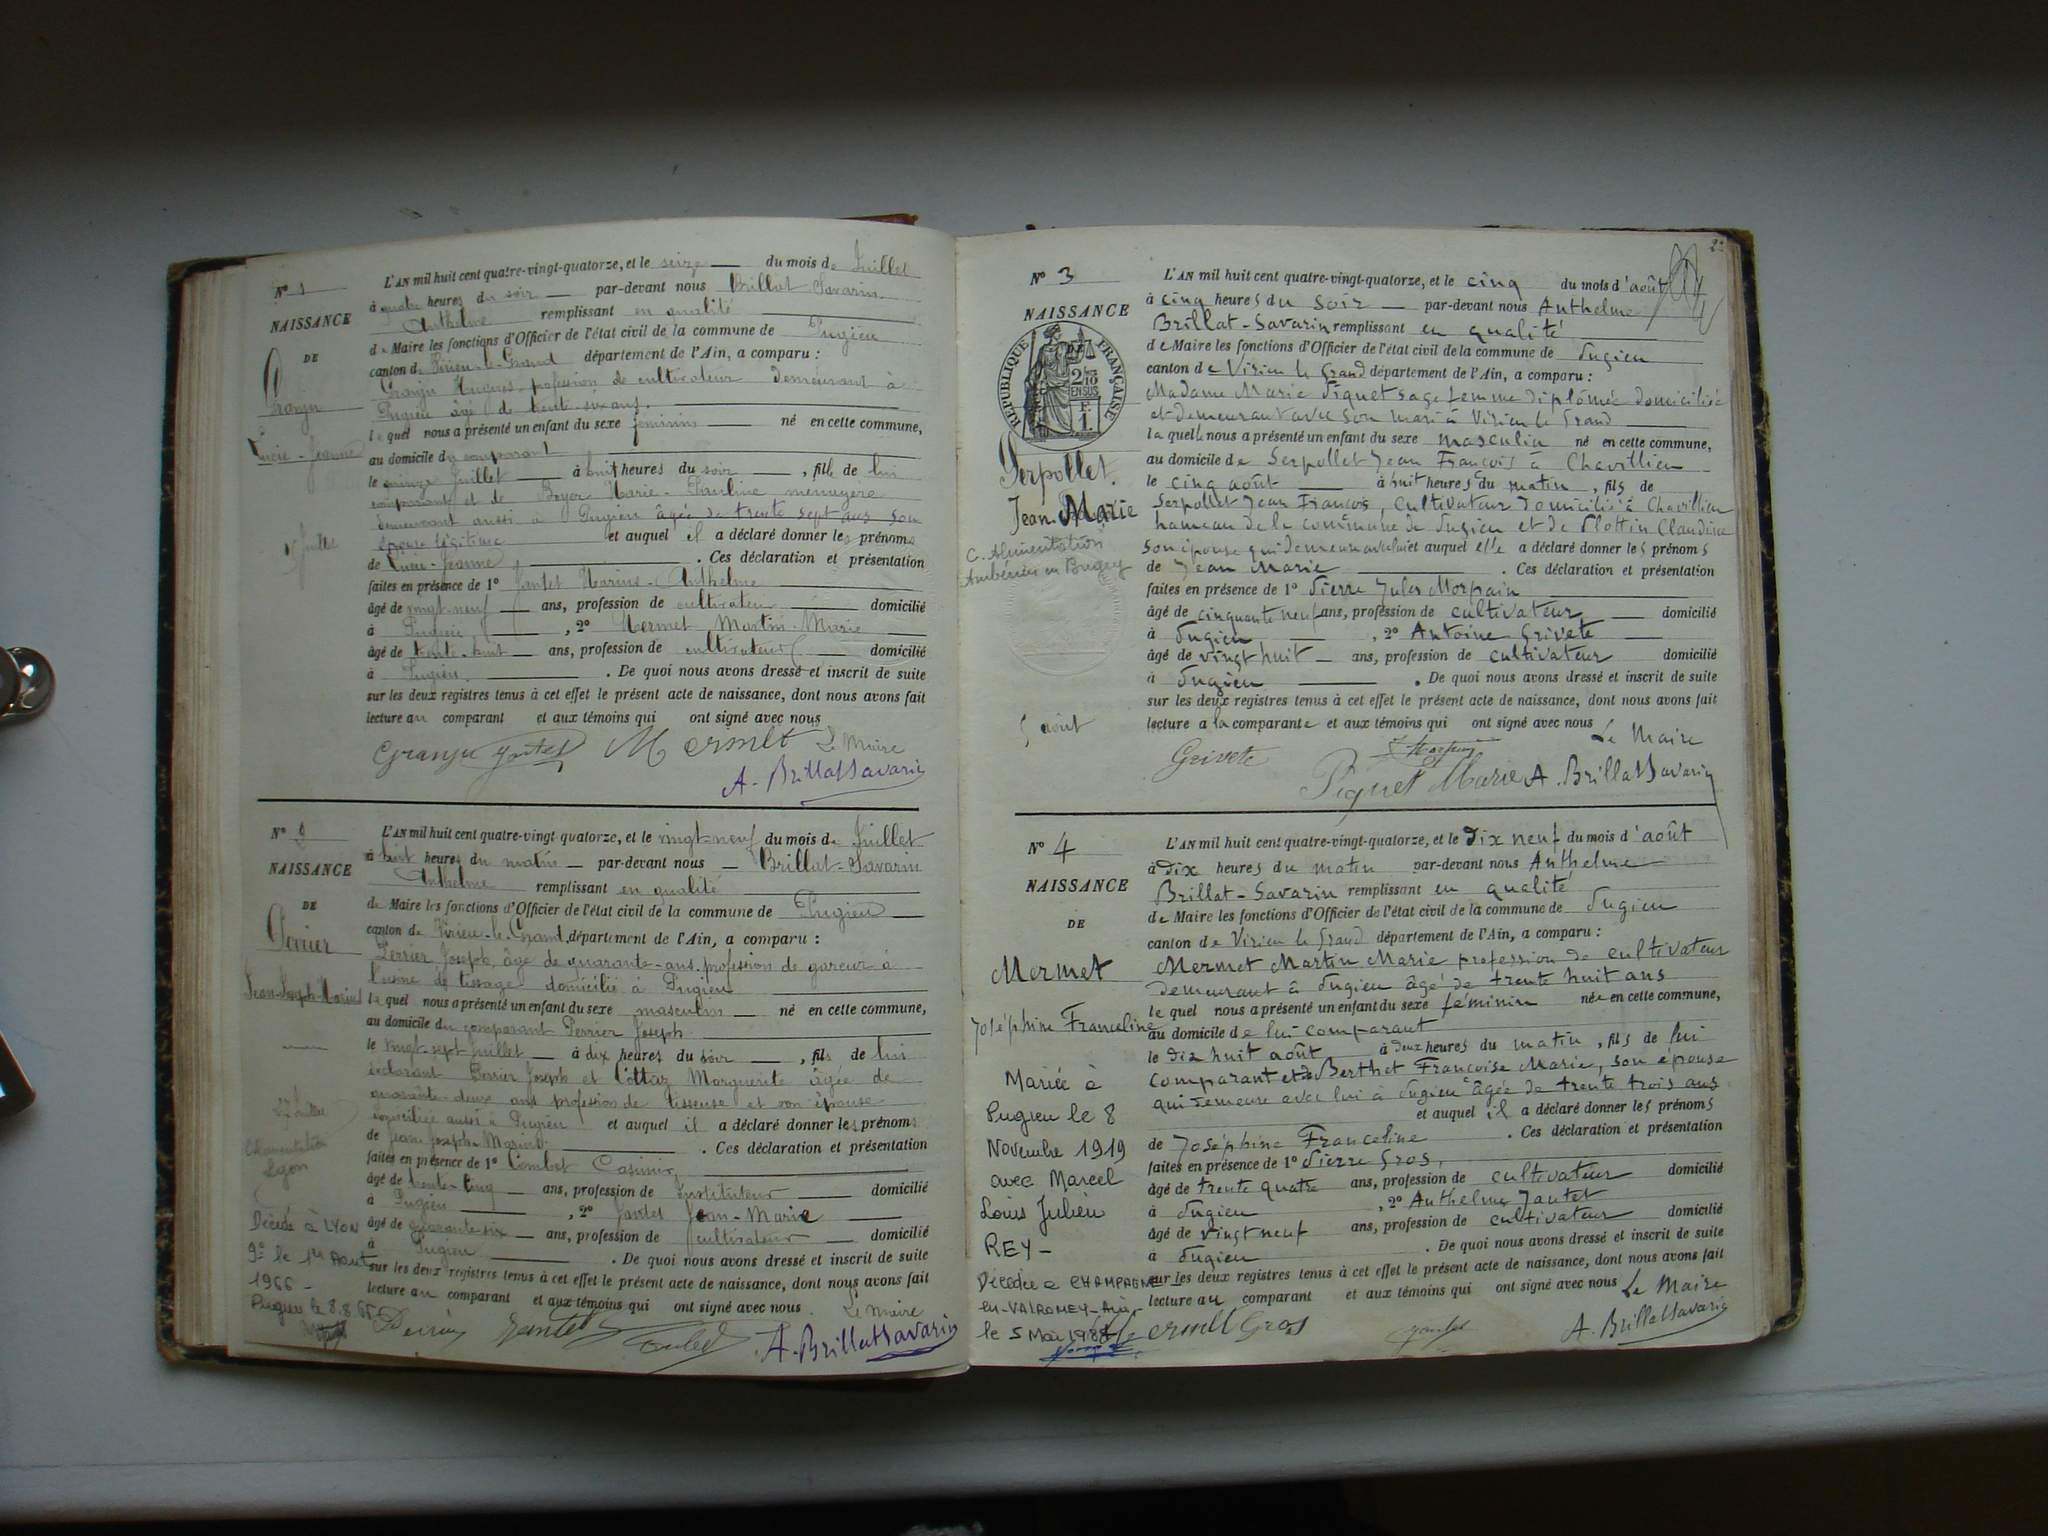 N° 1
NAISSANCE
DE
Granju
Lucie-Jeanne
15 Juillet
L'AN mil huit cent quatre-vingt-quatorze, et le seize du mois de Juillet
à quatre heures du soir par-devant nous Brillat Savarin
Anthelme remplissant en qualité
de Maire les fonctions d'Officier de l'état civil de la commune de Pugieu
canton de Virieu-le-Grand département de l'Ain, a comparu :
Granju Hugues profession de cultivateur demeurant à
Pugieu âgé de trente-six ans.
lequel nous a présenté un enfant du sexe féminin né en cette commune,
au domicile du comparant
le quinze Juillet à huit heures du soir , fille de lui
comparant et de Boyer Marie-Pauline ménagère
demeurant aussi à Pugieu âgée de trente sept ans son
épouse légitime et auquel il a déclaré donner les prénoms
de Lucie-Jeanne . Ces déclaration et présentation
faites en présence de 1° Jantet Marius-Anthelme
âgé de vingt-neuf ans, profession de cultivateur domicilié
à Pugieu , 2° Mermet Martin-Marie
âgé de trente-huit ans, profession de cultivateur domicilié
à Pugieu . De quoi nous avons dressé et inscrit de suite
sur les deux registres tenus à cet effet le présent acte de naissance, dont nous avons fait
lecture au comparant et aux témoins qui ont signé avec nous
Granju Jantet Mermet Le Maire
A. Brillat Savarin
NAISSANCE
DE
Perrier
Jean-Joseph-Marius
27 Juillet
Lyon
Décédé à LYON
9° le 1er Aout
1966 -
L'AN mil huit cent quatre-vingt-quatorze, et le vingt-neuf du mois de Juillet
à huit heures du matin par-devant nous Brillat-Savarin
Anthelme remplissant en qualité
de Maire les fonctions d'Officier de l'état civil de la commune de Pugieu
canton de Virieu-le-Grand département de l'Ain, a comparu :
Perrier Joseph, âgé de quarante-ans profession de gareur à
l'usine de tissage domicilié à Pugieu
lequel nous a présenté un enfant du sexe masculin né en cette commune,
au domicile du comparant Perrier Joseph
le vingt-sept Juillet à dix heures du soir , fils de lui
déclarant Perrier Joseph et Cottaz Marguerite âgée de
quarante-deux ans profession de tisseuse et son épouse
domiciliée aussi à Pugieu et auquel il a déclaré donner les prénoms
de Jean-Joseph-Marius . Ces déclaration et présentation
faites en présence de 1° Combet Casimir
âgé de trente-cinq ans, profession de instituteur domicilié
à Pugieu , 2° Jantet Jean-Marie
âgé de quarante-six ans, profession de cultivateur domicilié
à Pugieu . De quoi nous avons dressé et inscrit de suite
sur les deux registres tenus à cet effet le présent acte de naissance, dont nous avons fait
lecture au comparant et aux témoins qui ont signé avec nous
Le Maire
Jantet A. Brillat Savarin
N° 3
NAISSANCE
DE
RÉPUBLIQUE FRANÇAISE
Serpollet
Jean-Marie
C. Alimentation
Ambérieu en Bugey
5 août
L'AN mil huit cent quatre-vingt-quatorze, et le cinq du mois d'août
à cinq heures du soir par-devant nous Anthelme
Brillat-Savarin remplissant en qualité
de Maire les fonctions d'Officier de l'état civil de la commune de Pugieu
canton de Virieu le Grand département de l'Ain, a comparu :
Madame Marie Piquet sage femme diplômée domiciliée
et demeurant avec son mari à Virieu le Grand
laquelle nous a présenté un enfant du sexe masculin né en cette commune,
au domicile de Serpollet Jean François à Chavillieu
le cinq août à huit heures du matin , fils de
Serpollet Jean François, cultivateur domicilié à Chavillieu
hameau de la commune de Pugieu et de Plottin Claudine
son épouse qui demeure avec lui et auquel elle a déclaré donner les prénoms
de Jean Marie . Ces déclaration et présentation
faites en présence de 1° Pierre Jules Morpain
âgé de cinquante neuf ans, profession de cultivateur domicilié
à Pugieu , 2° Antoine Grivete
âgé de vingt huit ans, profession de cultivateur domicilié
à Pugieu . De quoi nous avons dressé et inscrit de suite
sur les deux registres tenus à cet effet le présent acte de naissance, dont nous avons fait
lecture a la comparante et aux témoins qui ont signé avec nous
Le Maire
Grivete
Piquet Marie A. Brillat Savarin
N° 4
NAISSANCE
DE
Mermet
Joséphine Franceline
Mariée à
Pugieu le 8
Novembre 1919
avec Marcel
Louis Julien
REY -
Décédée à CHAMPAGNE
en-VALROMEY-Ain
le 5 Mai 1988
L'AN mil huit cent quatre-vingt-quatorze, et le dix neuf du mois d'août
à dix heures du matin par-devant nous Anthelme
Brillat-Savarin remplissant en qualité
de Maire les fonctions d'Officier de l'état civil de la commune de Pugieu
canton de Virieu le Grand département de l'Ain, a comparu :
Mermet Martin Marie profession de cultivateur
demeurant à Pugieu âgé de trente huit ans
lequel nous a présenté un enfant du sexe féminin née en cette commune,
au domicile de lui comparant
le dix huit août à deux heures du matin , fils de lui
comparant et de Berthet Françoise Marie, son épouse
qui demeure avec lui à Pugieu âgée de trente trois ans
et auquel il a déclaré donner les prénoms
de Joséphine Franceline . Ces déclaration et présentation
faites en présence de 1° Pierre Gros,
âgé de trente quatre ans, profession de cultivateur domicilié
à Pugieu , 2° Anthelme Jantet
âgé de vingt neuf ans, profession de cultivateur domicilié
à Pugieu . De quoi nous avons dressé et inscrit de suite
sur les deux registres tenus à cet effet le présent acte de naissance, dont nous avons fait
lecture au comparant et aux témoins qui ont signé avec nous Le Maire
Mermet Gros Jantet A. Brillat Savarin